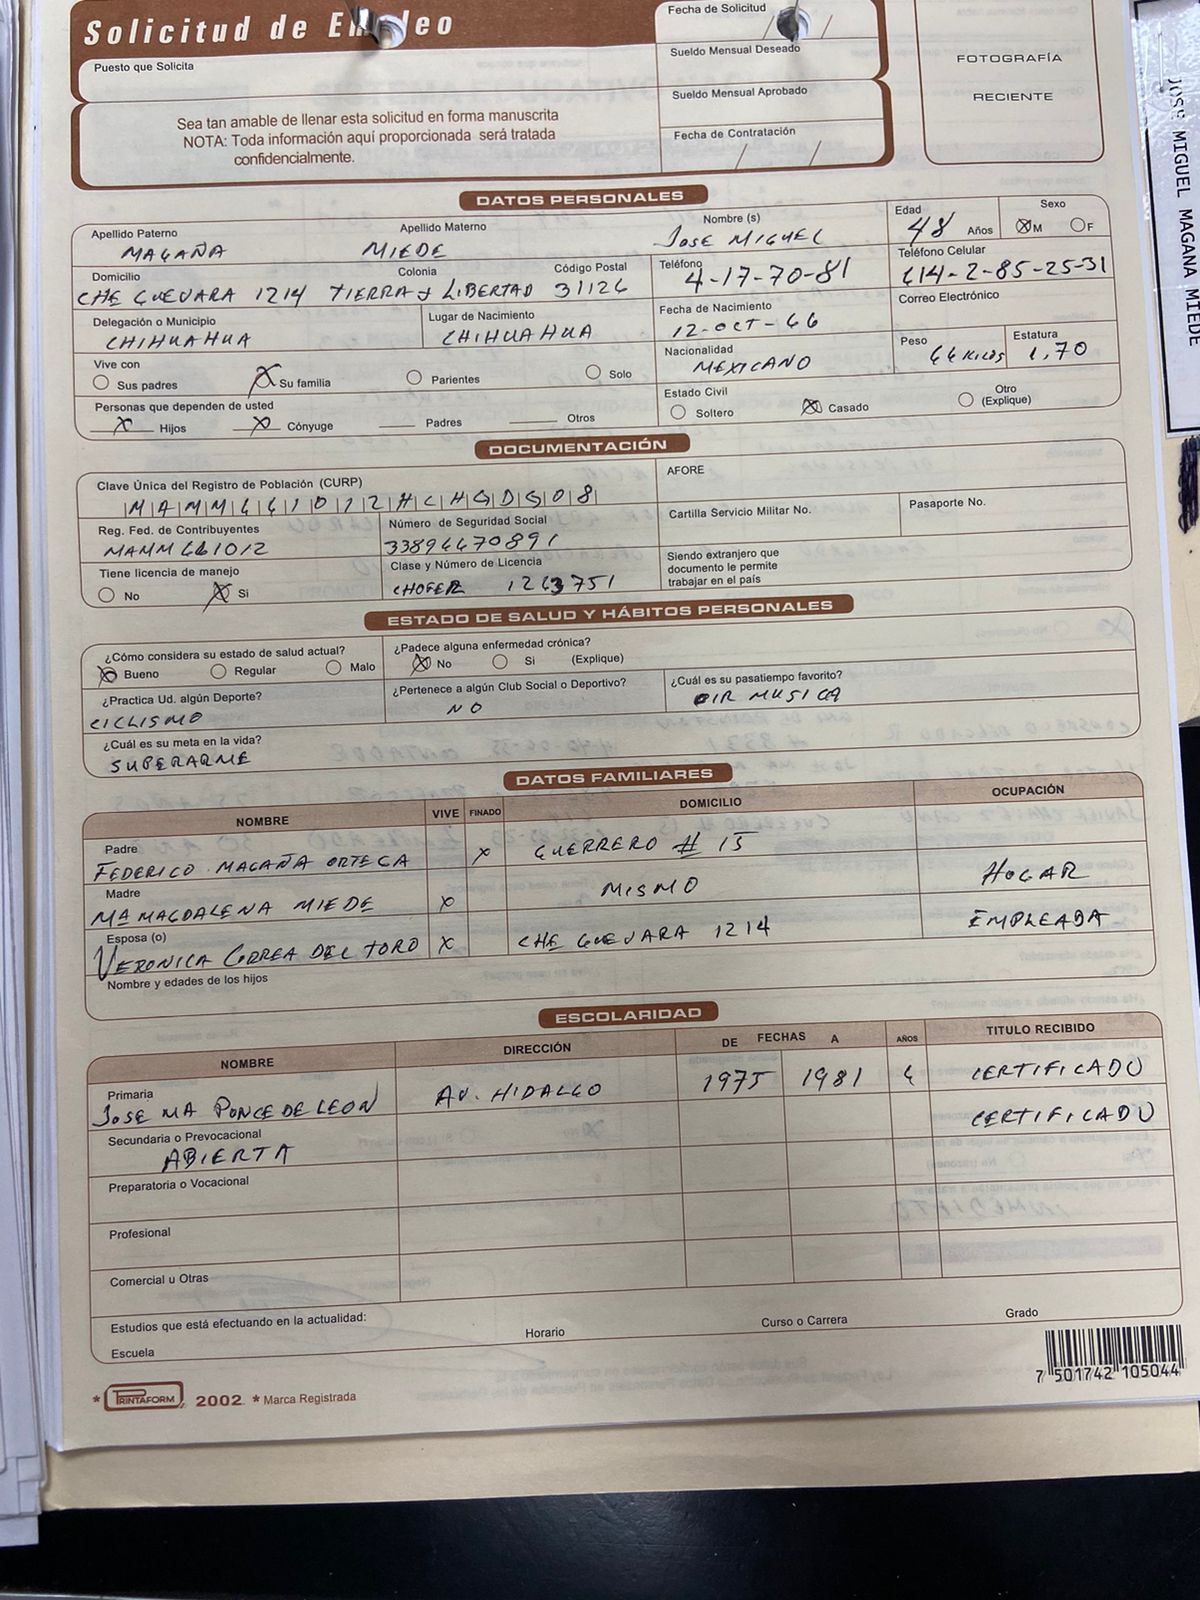 Solicitud de Em leo
Fecha de Solicitud
Puesto que Solicita
Sueldo Mensual Deseado
FOTOGRAFÍA
RECIENTE
Sueldo Mensual Aprobado
Sea tan amable de llenar esta solicitud en forma manuscrita
NOTA: Toda información aquí proporcionada será tratada
confidencialmente.
Fecha de Contratación
JOSE MIGUEL MAGANA MIEDE
DATOS PERSONALES
Apellido Paterno Apellido Materno Nombre (s) Edad Sexo
MAGAÑA MIEDE JOSE MIGUEL 48 Años M F
Domicilio Colonia Código Postal Teléfono Teléfono Celular
CHE GUEVARA 1214 TIERRA y LIBERTAD 31126 4-17-70-81 614-2-85-25-31
Delegación o Municipio Lugar de Nacimiento Fecha de Nacimiento Correo Electrónico
CHIHUAHUA CHIHUAHUA 12-OCT-66
Vive con Nacionalidad Peso Estatura
Sus padres Su familia Parientes Solo MEXICANO 66 KILOS 1.70
Personas que dependen de usted Estado Civil
Hijos Cónyuge Padres Otros Soltero Casado Otro (Explique)
DOCUMENTACIÓN
Clave Única del Registro de Población (CURP) AFORE
MAMM661012HCHGDG08
Reg. Fed. de Contribuyentes Número de Seguridad Social Cartilla Servicio Militar No. Pasaporte No.
MAMM661012 33894670891
Tiene licencia de manejo Clase y Número de Licencia Siendo extranjero que
documento le permite
trabajar en el país
No Si CHOFER 1263751
ESTADO DE SALUD Y HÁBITOS PERSONALES
¿Cómo considera su estado de salud actual? ¿Padece alguna enfermedad crónica?
Bueno Regular Malo No Si (Explique)
¿Practica Ud. algún Deporte? ¿Pertenece a algún Club Social o Deportivo? ¿Cuál es su pasatiempo favorito?
CICLISMO NO OIR MUSICA
¿Cuál es su meta en la vida?
SUPERARME
DATOS FAMILIARES
NOMBRE VIVE FINADO DOMICILIO OCUPACIÓN
Padre
FEDERICO MAGAÑA ORTEGA X GUERRERO # 15
Madre
Mª MAGDALENA MIEDE X MISMO HOGAR
Esposa (o)
VERONICA CORREA DEL TORO X CHE GUEVARA 1214 EMPLEADA
Nombre y edades de los hijos
ESCOLARIDAD
NOMBRE DIRECCIÓN DE FECHAS A AÑOS TITULO RECIBIDO
Primaria
JOSE MA PONCE DE LEON AV. HIDALGO 1975 1981 6 CERTIFICADO
Secundaria o Prevocacional
ABIERTA CERTIFICADO
Preparatoria o Vocacional
Profesional
Comercial u Otras
Estudios que está efectuando en la actualidad:
Escuela Horario Curso o Carrera Grado
* PRINTAFORM 2002 * Marca Registrada
7 501742 105044